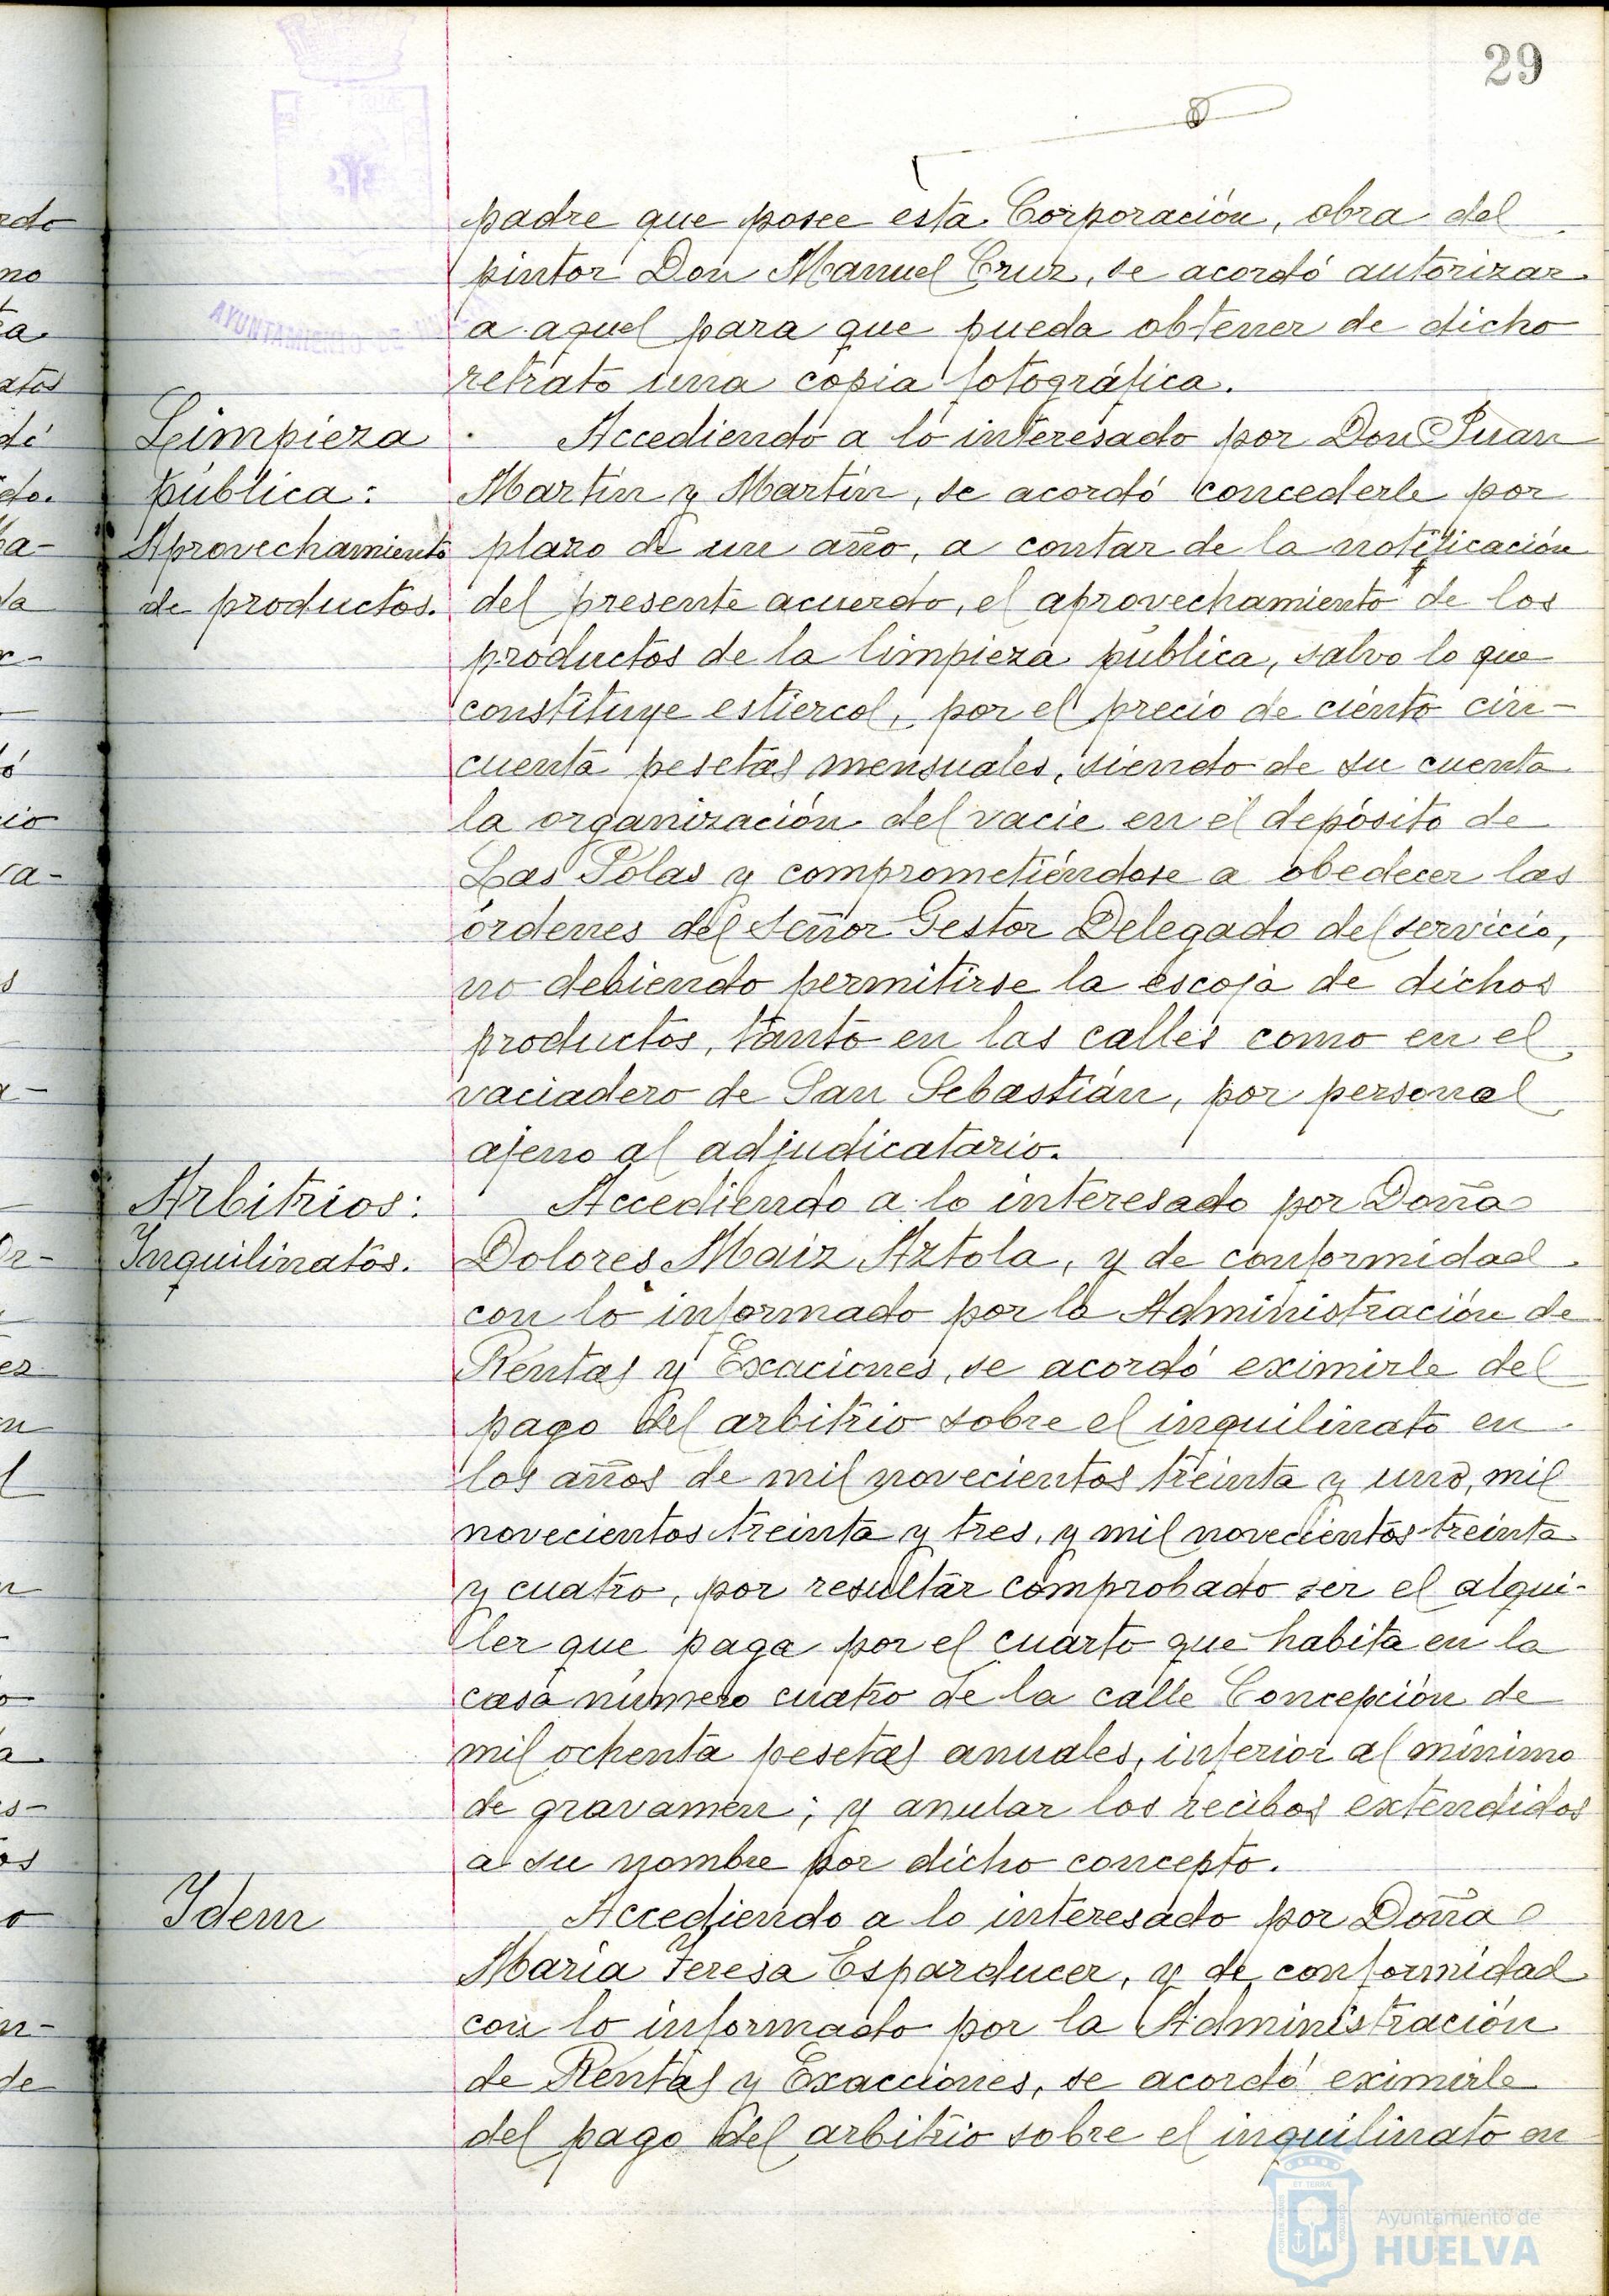 29
padre que posee esta Corporación, obra del
pintor Don Manuel Cruz, se acordó autorizar
a aquel para que pueda obtener de dicho
retrato una copia fotográfica.
Limpieza
pública:
Aprovechamiento
de productos.
Accediendo a lo interesado por Don Juan
Martín y Martín, se acordó concederle por
plazo de un año, a contar de la notificación
del presente acuerdo, el aprovechamiento de los
productos de la limpieza pública, salvo lo que
constituye estiercol, por el precio de ciento cin-
cuenta pesetas mensuales, siendo de su cuenta
la organización del vacie en el depósito de
Las Polas y comprometiéndose a obedecer las
órdenes del Señor Gestor Delegado del servicio,
no debiendo permitirse la escoja de dichos
productos, tanto en las calles como en el
vaciadero de San Sebastián, por personal
ajeno al adjudicatario.
Arbitrios:
Inquilinatos.
Accediendo a lo interesado por Doña
Dolores Maiz Aztola, y de conformidad
con lo informado por la Administración de
Rentas y Exaciones, se acordó eximirle del
pago del arbitrio sobre el inquilinato en
los años de mil novecientos treinta y uno, mil
novecientos treinta y tres, y mil novecientos treinta
y cuatro, por resultar comprobado ser el alqui-
ler que paga por el cuarto que habita en la
casa número cuatro de la calle Concepción de
mil ochenta pesetas anuales, inferior al mínimo
de gravamen; y anular los recibos extendidos
a su nombre por dicho concepto.
Idem
Accediendo a lo interesado por Doña
María Teresa Esparducer, y de conformidad
con lo informado por la Administración
de Rentas y Exacciones, se acordó eximirle
del pago del arbitrio sobre el inquilinato en
AYUNTAMIENTO DE
Ayuntamiento de
HUELVA